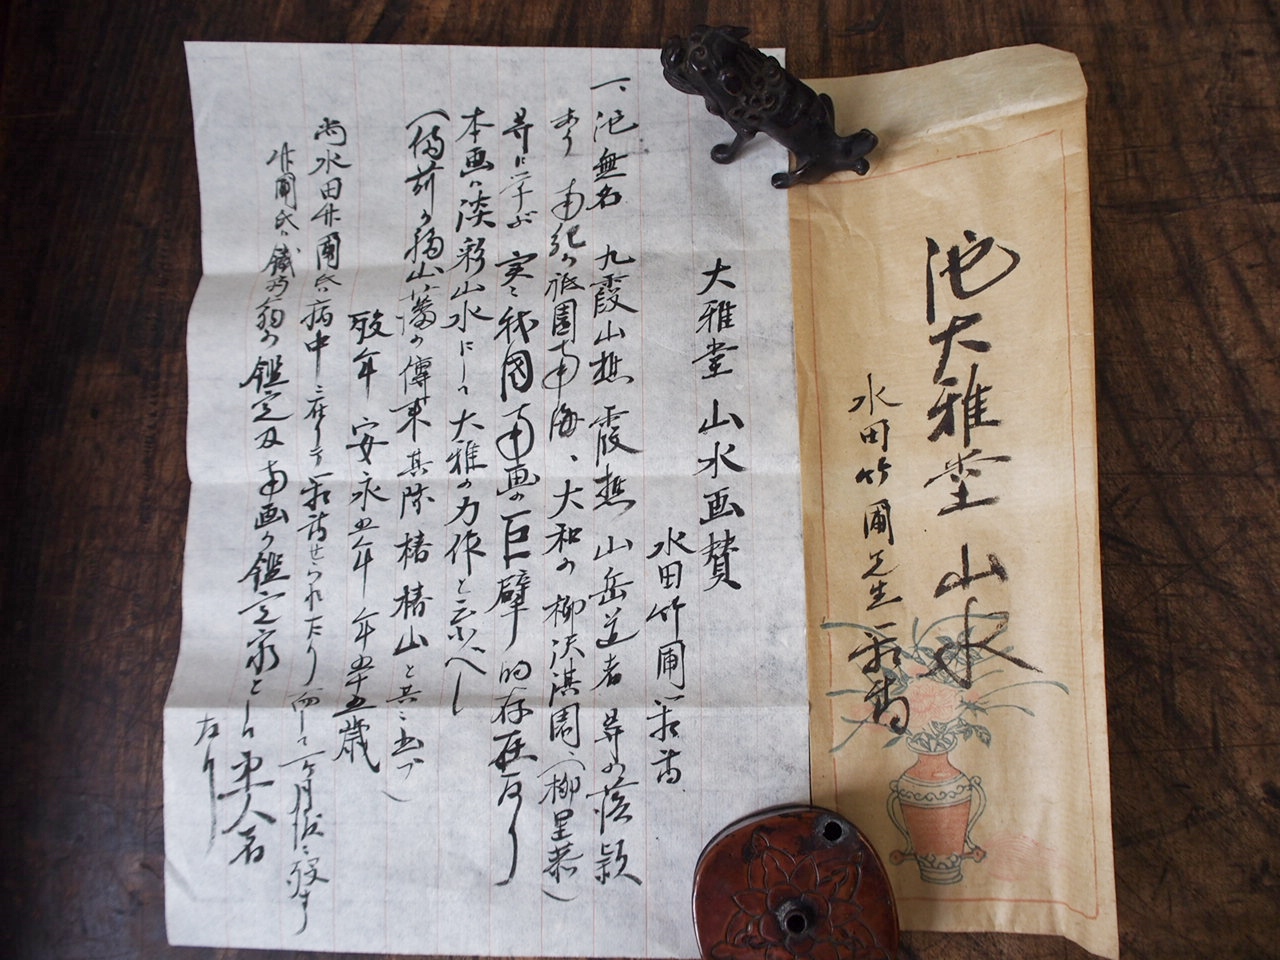 池大雅堂 山水
水田竹圃先生箱書
大雅堂 山水画賛
水田竹圃箱書
一、池無名 九霞山樵 霞樵 山岳道者 等の落款
あり 南紀の祇園南海、大和の柳淇園、(柳里恭)
等に学ぶ 実に我国南画の巨擘的存在なり
本画は淡彩山水にして大雅の力作と云ふべし
(備前の福山藩の傳来 其際椿椿山と共に出づ)
歿年 安永五年 年五十五歳
尚水田竹圃氏病中に在りて箱書せられたり 而して一ヶ月後に歿す
竹圃氏は鐵斎翁の鑑定及南画の鑑定家として第一人者
なり